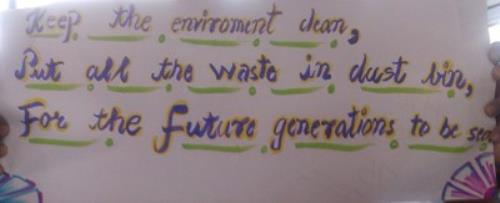 Keep the enviroment clean,
Put all the waste in dust bin,
For the future generations to be